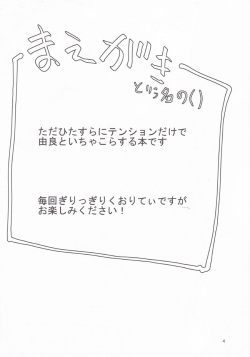 まえがき
という名の()
ただひたすらにテンションだけで
由良といちゃこらする本です
毎回ぎりっぎりくおりてぃですが
お楽しみください！